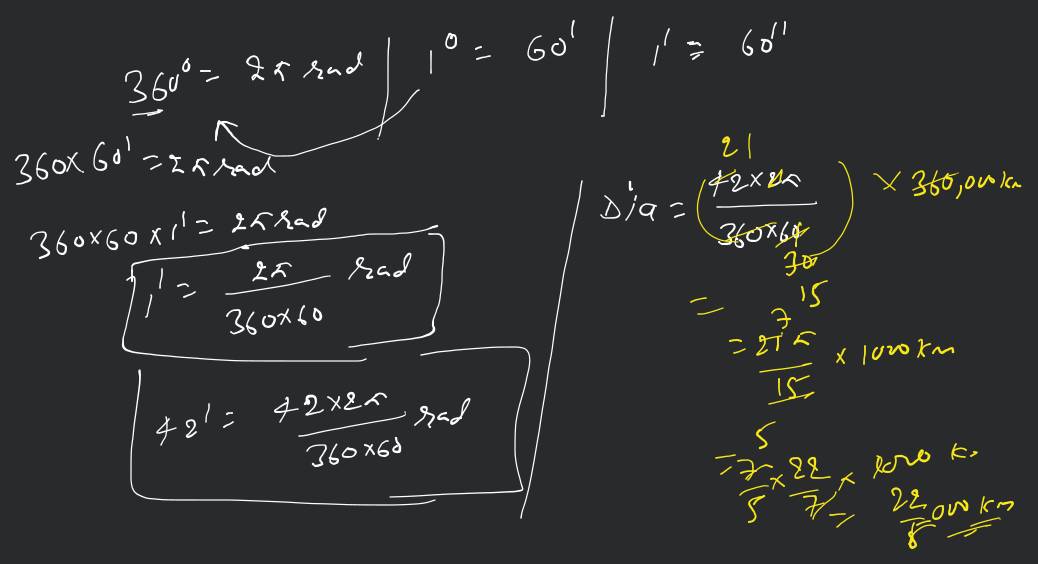 360° = 2π rad | 1° = 60' | 1' = 60''
360×60' = 2π rad
360×60×1' = 2π rad
1' = 2π / 360×60 rad
42' = 42×2π / 360×60 rad
21
Dia = ( 42×2π / 360×60 ) × 360,000 km
30
15
=
7
= 21π / 15 × 1000 km
5
= 7 / 5 × 22 / 7 × 1000 km
= 22 / 5 000 km